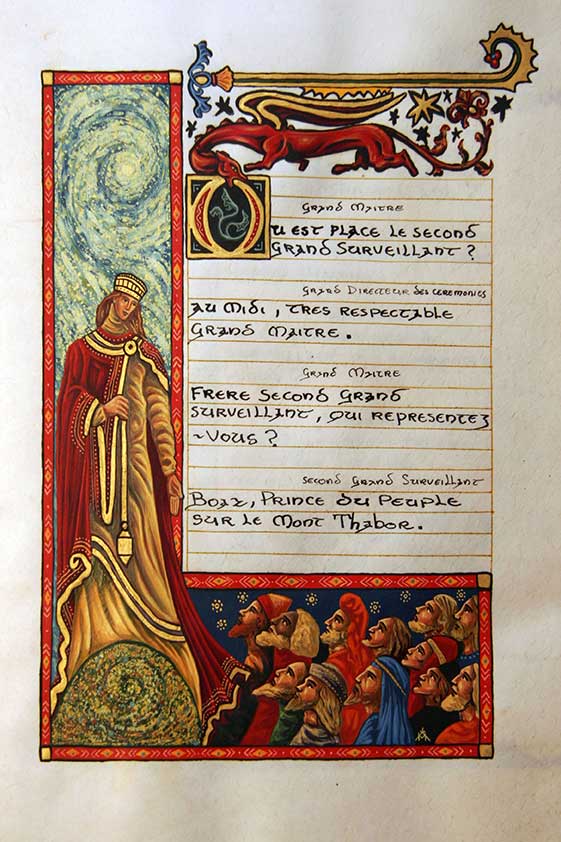 Grand Maitre
Ou est place le second
Grand Surveillant ?
Grand Directeur des ceremonies
Au Midi , tres respectable
Grand Maitre .
Grand Maitre
Frere Second Grand
Surveillant , qui representez
~Vous ?
Second Grand Surveillant
Boaz , Prince du Peuple
sur le Mont Thabor .